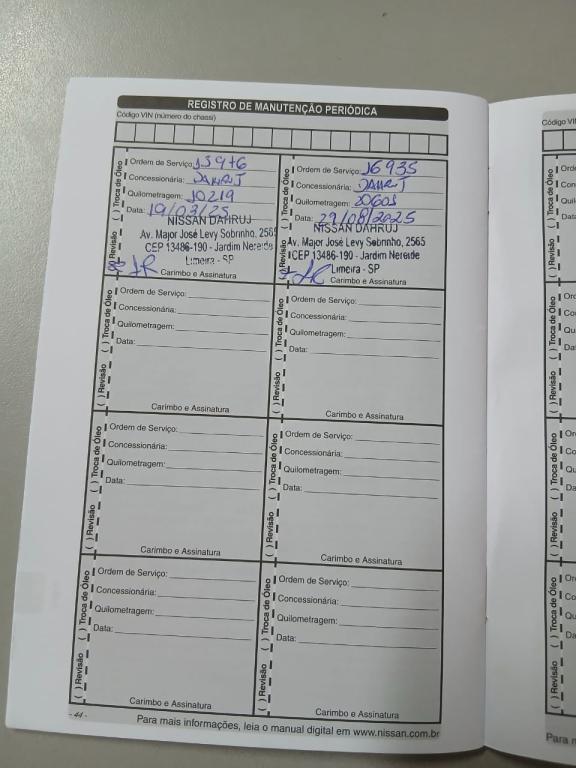 REGISTRO DE MANUTENÇÃO PERIÓDICA
Código VIN (número do chassi)
( ) Revisão ( ) Troca de Óleo
Ordem de Serviço: 15976
Concessionária: DAHRUJ
Quilometragem: 10219
Data: 19/03/25
NISSAN DAHRUJ
Av. Major José Levy Sobrinho, 2565
CEP 13486-190 - Jardim Nereide
Limeira - SP
Carimbo e Assinatura
( ) Revisão ( ) Troca de Óleo
Ordem de Serviço: 16935
Concessionária: DAHRUJ
Quilometragem: 20601
Data: 29/08/2025
NISSAN DAHRUJ
Av. Major José Levy Sobrinho, 2565
CEP 13486-190 - Jardim Nereide
Limeira - SP
Carimbo e Assinatura
( ) Revisão ( ) Troca de Óleo
Ordem de Serviço:
Concessionária:
Quilometragem:
Data:
Carimbo e Assinatura
( ) Revisão ( ) Troca de Óleo
Ordem de Serviço:
Concessionária:
Quilometragem:
Data:
Carimbo e Assinatura
( ) Revisão ( ) Troca de Óleo
Ordem de Serviço:
Concessionária:
Quilometragem:
Data:
Carimbo e Assinatura
( ) Revisão ( ) Troca de Óleo
Ordem de Serviço:
Concessionária:
Quilometragem:
Data:
Carimbo e Assinatura
( ) Revisão ( ) Troca de Óleo
Ordem de Serviço:
Concessionária:
Quilometragem:
Data:
Carimbo e Assinatura
( ) Revisão ( ) Troca de Óleo
Ordem de Serviço:
Concessionária:
Quilometragem:
Data:
Carimbo e Assinatura
- 44 -
Para mais informações, leia o manual digital em www.nissan.com.br
Código VI
( ) Revisão ( ) Troca de Óleo
( ) Revisão ( ) Troca de Óleo
( ) Revisão ( ) Troca de Óleo
( ) Revisão ( ) Troca de Óleo
Para m